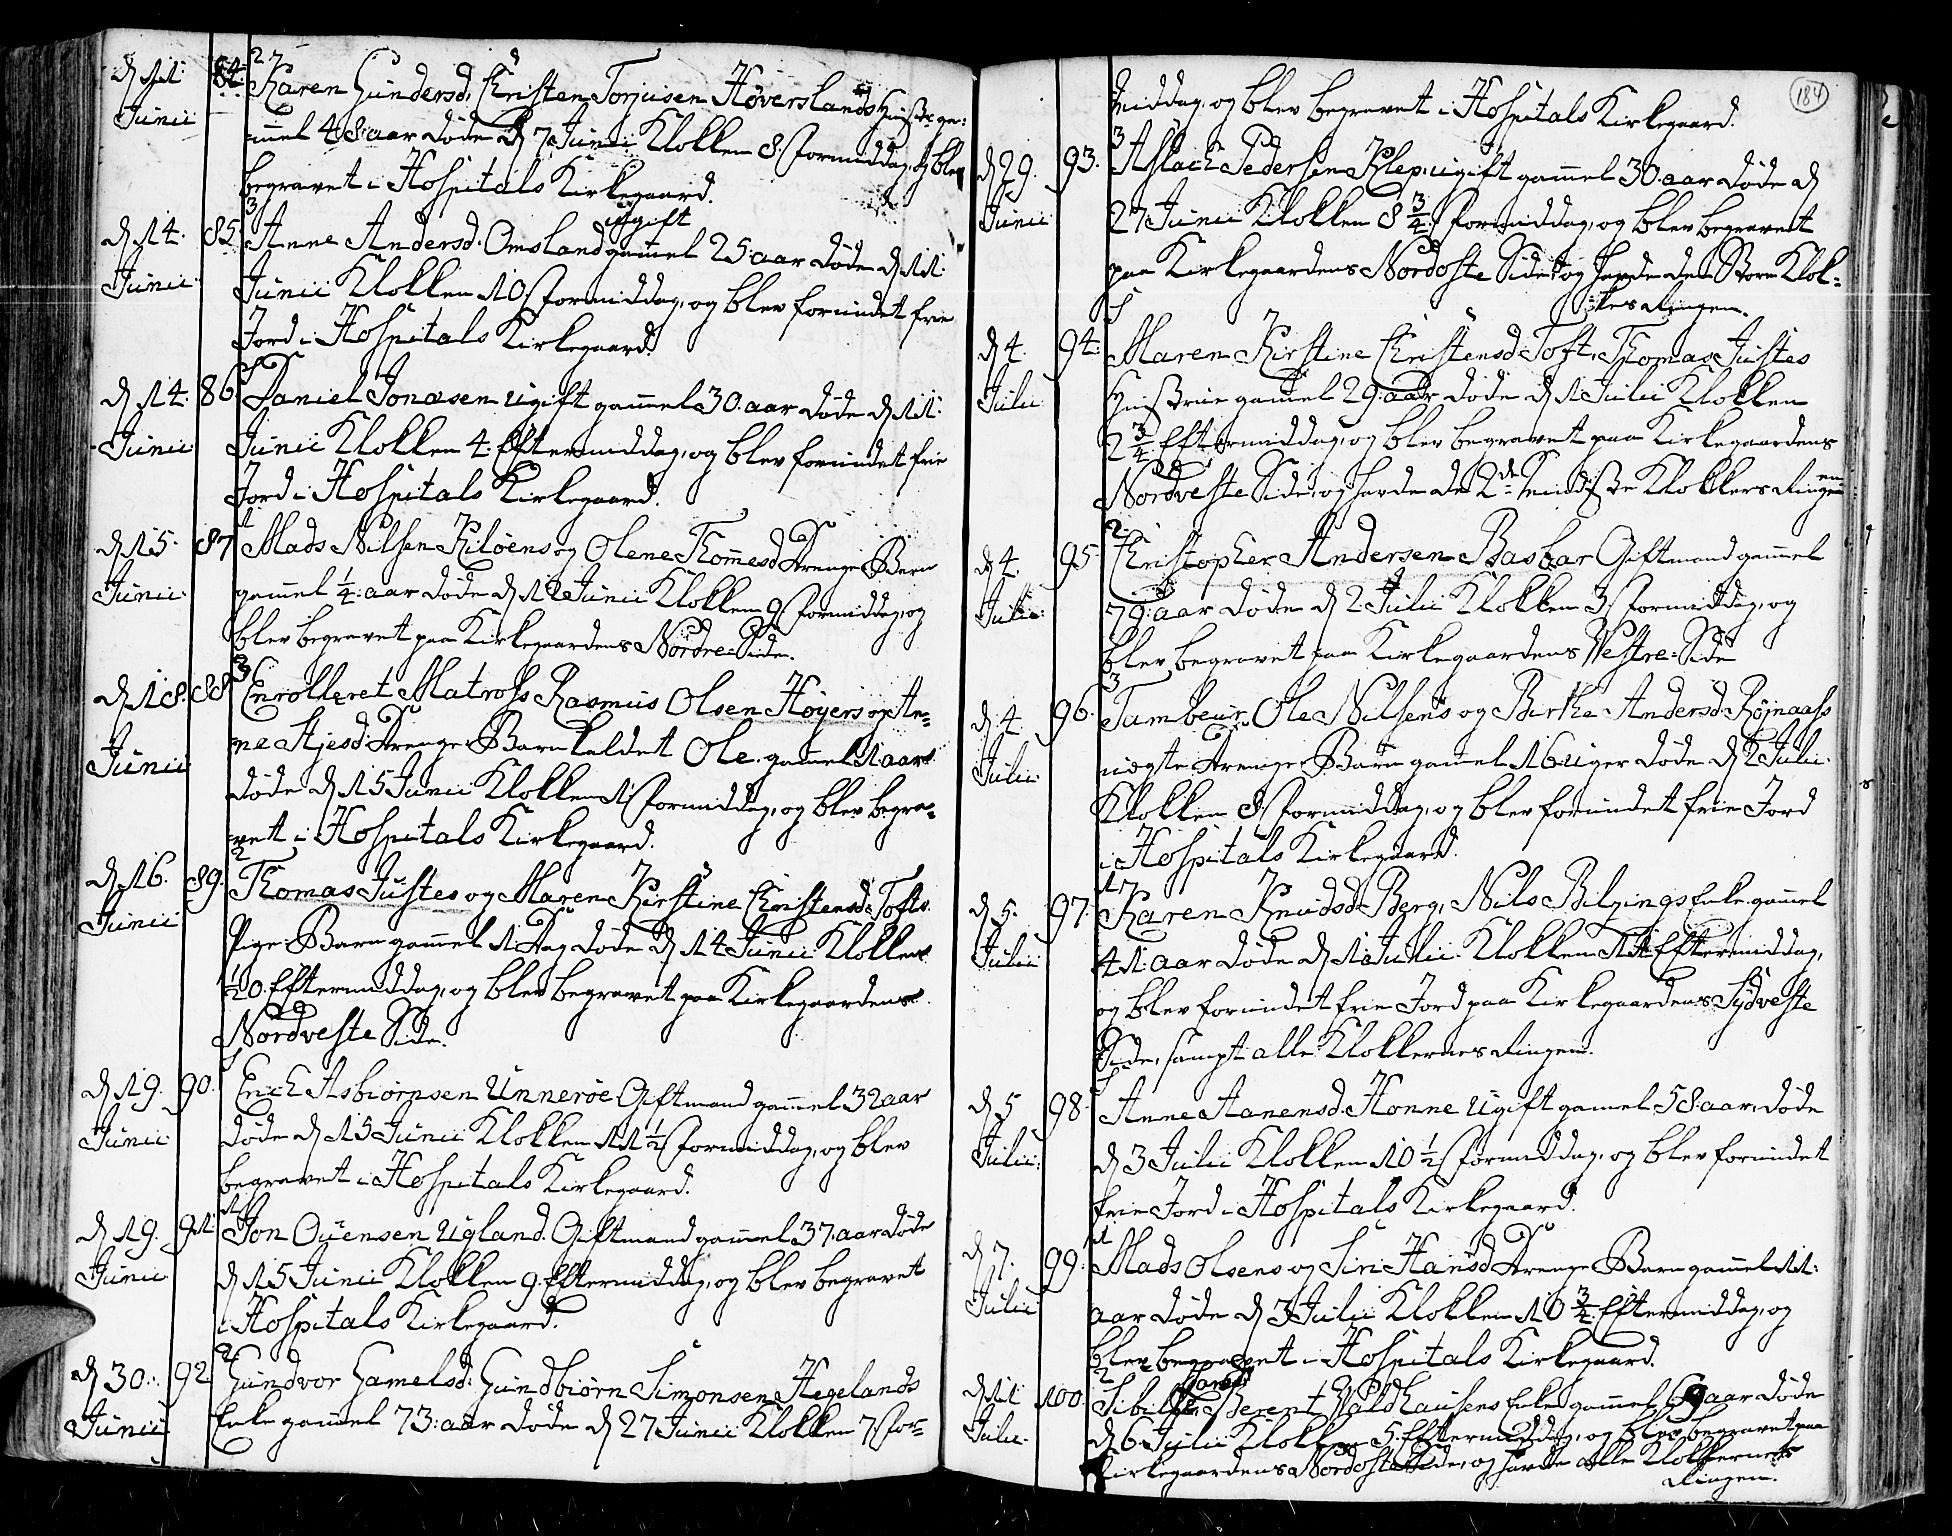 d 11. 84. Karen Gundersd. Christen Torjusen Høverslands Hustr. ga-
Junii mel 48 aar døde d 7 Junii Klokken 8 formiddag, og blev
begravet i Hospitals Kirkegaard.
3
ugift
d 14. 85. Anne Andersd. Omsland gamel 25 aar døde d 11.
Junii Junii Klokken 10 formiddag, og blev forundet frie
Jord i Hospitals Kirkegaard.
d 14. 86. Daniel Jonasen ugift gammel 30 aar døde d 11.
Junii Junii Klokken 4. Eftermiddag, og blev forundet frie
Jord i Hospitals Kirkegaard.
1
d 15. 87 Mads Nilsen Kiløens og Olene Thommesd Drenge Barn
Junii gamel 1/4 aar døde d 12 Junii Klokken 9 formiddag, og
blev begravet paa Kirkegaardens Nordre Side.
3
d 18. 88 Enrolleret Matross Rasmus Olsen Høyers og An-
Junii ne Ajesd. Drenge Barn kaldet Ole. gammel 1 aar
døde d 15 Junii Klokken 1 formiddag, og blev begra-
vet i Hospitals Kirkegaard.
2
d 16. 89. Thomas Justes og Maren Kirstine Christensd. Tofts
Junii Pige Barn gammel 1 Dag døde d 14 Junii Klokken
10 Eftermiddag, og blev begravet paa Kirkegaardens
Nordveste Side.
d 19. 90. Erich Asbiørnsen Unnerøe Giftmand gammel 32 aar
Junii døde d 15 Junii Klokken 11 1/2 formiddag, og blev
begravet i Hospitals Kirkegaard.
1
d 19. 91. Jon Ouensen Ugland. Giftmand gammel 37 aar døde
Junii d 15 Junii Klokken 9 Eftermiddag, og blev begravet
i Hospitals Kirkegaard.
2
d 30. 92 Gundvor Gamelsd. Gundbiørn Simonsen Hegelands
Junii Enke gammel 73 aar døde d 27 Junii Klokken 7 for-
184
middag, og blev begravet i Hospitals Kirkegaard.
3
d 29. 93. Aslach Pedersen Klep, ugift gammel 30 aar døde d
Junii 27 Junii Klokken 8 3/4 formiddag, og blev begravet
paa Kirkegaardens Nordoste Side, og havde den Store Klok-
kes Ringen.
d 4. 94. Maren Kirstine Christensd. Toft, Thomas Justes
Julii Hustrue gamel 29 aar døde d 1 Julii Klokken
2 3/4 Eftermiddag, og blev begravet paa Kirkegaardens
Nordveste Side, og havde de 2de mindste Klokkers Ringen
2
d 4. 95 Christopher Andersen Basbar Giftmand gammel
Julii 79 aar døde d 2 Julii Klokken 3 formiddag, og
blev begravet paa Kirkegaardens Vestre Side
3
d 4. 96. Tambeur Ole Nilsens og Birthe Andersd. Røjnaass
Julii uægte Drenge Barn gammel 16 uger døde d 2 Julii
Klokken 8 formiddag, og blev forundet frie Jord
i Hospitals Kirkegaard.
d 5. 97. Karen Knudsd. Berg, Nils Bilzings Enke gammel
Julii 41 aar døde d 1 Julii Klokken 11 Eftermiddag,
og blev forundet frie Jord paa Kirkegaardens Sydveste
Side, sampt alle Klokkernes Ringen.
d 5 98. Anne Aanensd. Honne ugift gamel 58 aar, døde
Julii d 3 Julii Klokken 10 1/2 formiddag, og blev forundet
frie Jord i Hospitals Kirkegaard.
1
d 7. 99. Mads Olsens og Siri Hansd Drenge Barn gammel 11.
Julii aar døde d 3 Julii Klokken 10 3/4 Eftermiddag, og
blev begravet i Hospitals Kirkegaard.
2
d 11 100. Sibille Berent Waldhausens Enke gammel 69 aar døde
Julii d 6 Julii Klokken 5 Eftermiddag, og blev begravet paa
Kirkegaardens Nordoste Side, og havde alle Klokkernes
Ringen.